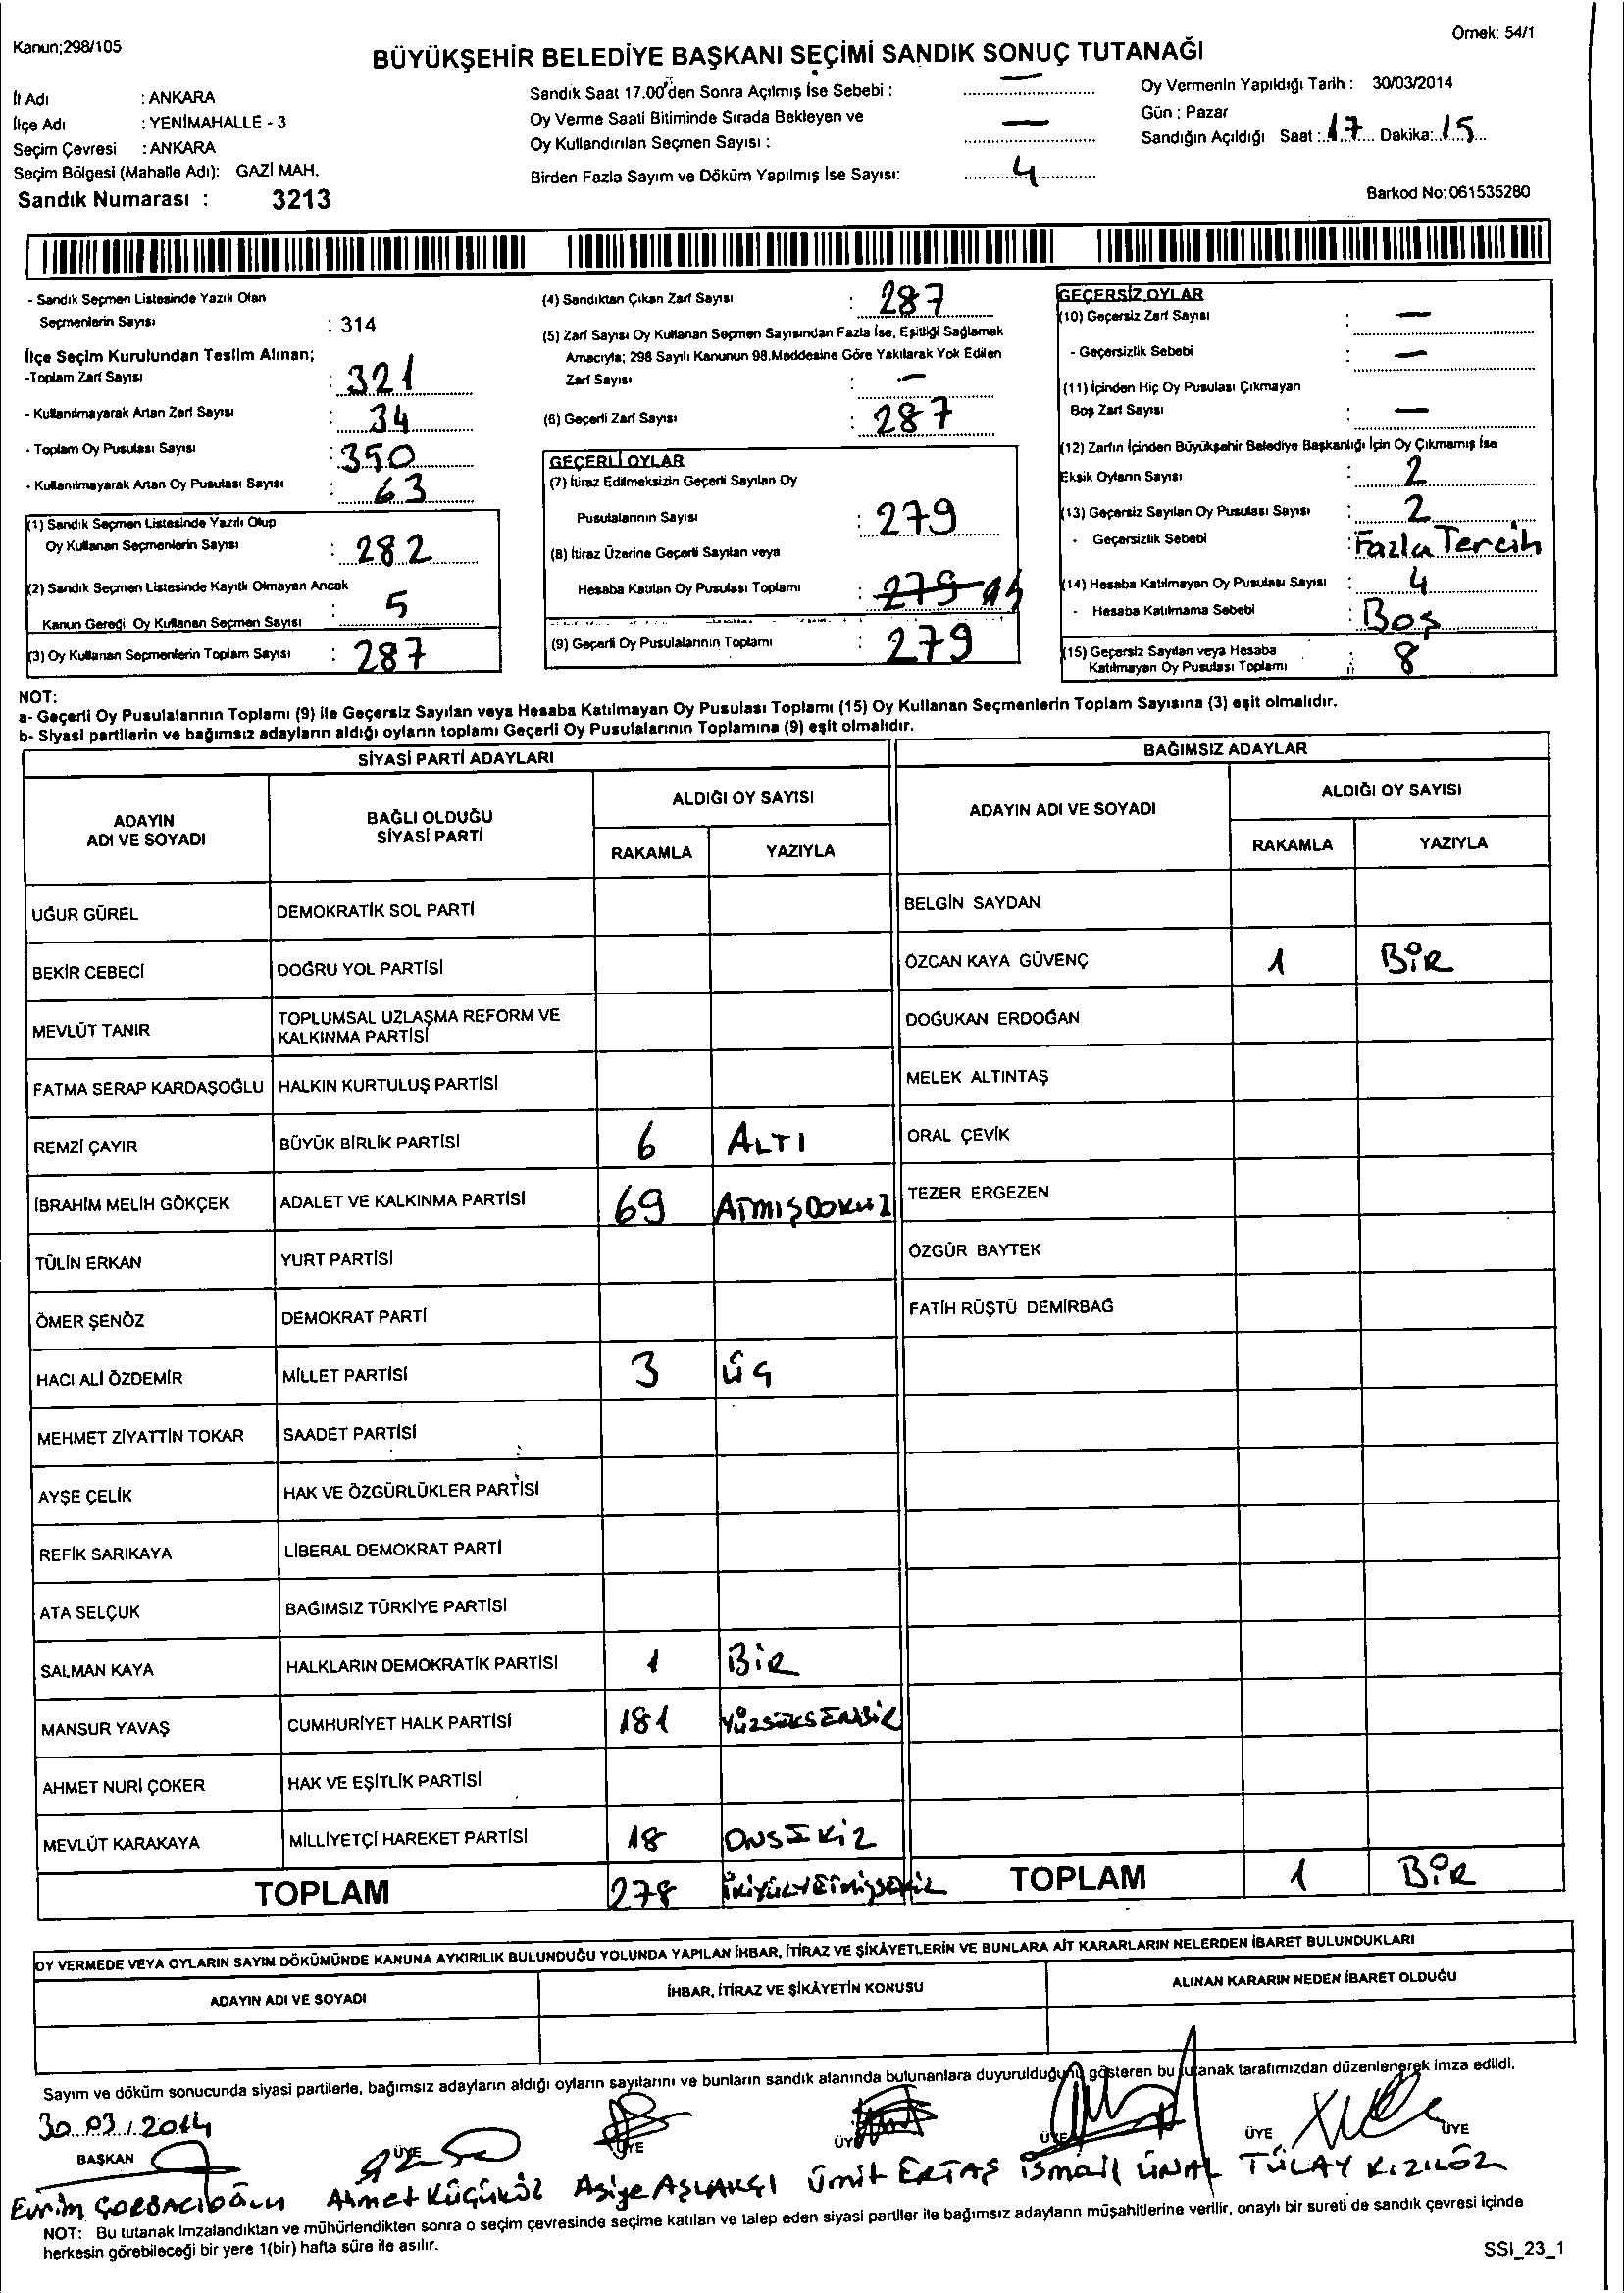 Kanun;298/105
Örnek: 54/1
BÜYÜKŞEHİR BELEDİYE BAŞKANI SEÇİMİ SANDIK SONUÇ TUTANAĞI
İl Adı : ANKARA
İlçe Adı : YENİMAHALLE - 3
Seçim Çevresi : ANKARA
Seçim Bölgesi (Mahalle Adı): GAZİ MAH.
Sandık Numarası : 3213
Sandık Saat 17.00'den Sonra Açılmış İse Sebebi : —
Oy Verme Saati Bitiminde Sırada Bekleyen ve
Oy Kullandırılan Seçmen Sayısı : —
Birden Fazla Sayım ve Döküm Yapılmış İse Sayısı: 4
Oy Vermenin Yapıldığı Tarih : 30/03/2014
Gün : Pazar
Sandığın Açıldığı Saat : 17 Dakika: 15
Barkod No: 061535280
- Sandık Seçmen Listesinde Yazılı Olan
Seçmenlerin Sayısı : 314
İlçe Seçim Kurulundan Teslim Alınan;
-Toplam Zarf Sayısı : 321
- Kullanılmayarak Artan Zarf Sayısı : 34
- Toplam Oy Pusulası Sayısı : 350
- Kullanılmayarak Artan Oy Pusulası Sayısı : 63
(1) Sandık Seçmen Listesinde Yazılı Olup
Oy Kullanan Seçmenlerin Sayısı : 282
(2) Sandık Seçmen Listesinde Kayıtlı Olmayan Ancak
Kanun Gereği Oy Kullanan Seçmen Sayısı : 5
(3) Oy Kullanan Seçmenlerin Toplam Sayısı : 287
(4) Sandıktan Çıkan Zarf Sayısı : 287
(5) Zarf Sayısı Oy Kullanan Seçmen Sayısından Fazla İse, Eşitliği Sağlamak
Amacıyla; 298 Sayılı Kanunun 98.Maddesine Göre Yakılarak Yok Edilen
Zarf Sayısı : —
(6) Geçerli Zarf Sayısı : 287
GEÇERLİ OYLAR
(7) İtiraz Edilmeksizin Geçerli Sayılan Oy
Pusulalarının Sayısı : 279
(8) İtiraz Üzerine Geçerli Sayılan veya
Hesaba Katılan Oy Pusulası Toplamı : 279
(9) Geçerli Oy Pusulalarının Toplamı : 279
GEÇERSİZ OYLAR
(10) Geçersiz Zarf Sayısı : —
- Geçersizlik Sebebi : —
(11) İçinden Hiç Oy Pusulası Çıkmayan
Boş Zarf Sayısı : —
(12) Zarfın İçinden Büyükşehir Belediye Başkanlığı İçin Oy Çıkmamış İse
Eksik Oyların Sayısı : 2
(13) Geçersiz Sayılan Oy Pusulası Sayısı : 2
- Geçersizlik Sebebi : Fazla Tercih
(14) Hesaba Katılmayan Oy Pusulası Sayısı : 4
- Hesaba Katılmama Sebebi : Boş
(15) Geçersiz Sayılan veya Hesaba
Katılmayan Oy Pusulası Toplamı : 8
NOT:
a- Geçerli Oy Pusulalarının Toplamı (9) ile Geçersiz Sayılan veya Hesaba Katılmayan Oy Pusulası Toplamı (15) Oy Kullanan Seçmenlerin Toplam Sayısına (3) eşit olmalıdır.
b- Siyasi partilerin ve bağımsız adayların aldığı oyların toplamı Geçerli Oy Pusulalarının Toplamına (9) eşit olmalıdır.
SİYASİ PARTİ ADAYLARI
ADAYIN
ADI VE SOYADI
BAĞLI OLDUĞU
SİYASİ PARTİ
ALDIĞI OY SAYISI
RAKAMLA YAZIYLA
UĞUR GÜREL DEMOKRATİK SOL PARTİ
BEKİR CEBECİ DOĞRU YOL PARTİSİ
MEVLÜT TANIR TOPLUMSAL UZLAŞMA REFORM VE
KALKINMA PARTİSİ
FATMA SERAP KARDAŞOĞLU HALKIN KURTULUŞ PARTİSİ
REMZİ ÇAYIR BÜYÜK BİRLİK PARTİSİ 6 ALTI
İBRAHİM MELİH GÖKÇEK ADALET VE KALKINMA PARTİSİ 69 ATMIŞDOKUZ
TÜLİN ERKAN YURT PARTİSİ
ÖMER ŞENÖZ DEMOKRAT PARTİ
HACI ALİ ÖZDEMİR MİLLET PARTİSİ 3 ÜÇ
MEHMET ZİYATTİN TOKAR SAADET PARTİSİ
AYŞE ÇELİK HAK VE ÖZGÜRLÜKLER PARTİSİ
REFİK SARIKAYA LİBERAL DEMOKRAT PARTİ
ATA SELÇUK BAĞIMSIZ TÜRKİYE PARTİSİ
SALMAN KAYA HALKLARIN DEMOKRATİK PARTİSİ 1 BİR
MANSUR YAVAŞ CUMHURİYET HALK PARTİSİ 181 YÜZSEKSENBİR
AHMET NURİ ÇOKER HAK VE EŞİTLİK PARTİSİ
MEVLÜT KARAKAYA MİLLİYETÇİ HAREKET PARTİSİ 18 ONSEKİZ
TOPLAM 278
BAĞIMSIZ ADAYLAR
ADAYIN ADI VE SOYADI
ALDIĞI OY SAYISI
RAKAMLA YAZIYLA
BELGİN SAYDAN
ÖZCAN KAYA GÜVENÇ 1 BİR
DOĞUKAN ERDOĞAN
MELEK ALTINTAŞ
ORAL ÇEVİK
TEZER ERGEZEN
ÖZGÜR BAYTEK
FATİH RÜŞTÜ DEMİRBAĞ
TOPLAM 1 BİR
OY VERMEDE VEYA OYLARIN SAYIM DÖKÜMÜNDE KANUNA AYKIRILIK BULUNDUĞU YOLUNDA YAPILAN İHBAR, İTİRAZ VE ŞİKÂYETLERİN VE BUNLARA AİT KARARLARIN NELERDEN İBARET BULUNDUKLARI
ADAYIN ADI VE SOYADI İHBAR, İTİRAZ VE ŞİKÂYETİN KONUSU ALINAN KARARIN NEDEN İBARET OLDUĞU
Sayım ve döküm sonucunda siyasi partilerle, bağımsız adayların aldığı oyların sayılarını ve bunların sandık alanında bulunanlara duyurulduğunu gösteren bu tutanak tarafımızdan düzenlenerek imza edildi.
30.03.2014
BAŞKAN ÜYE ÜYE ÜYE ÜYE ÜYE ÜYE
Evrim Ahmet Küçüköz Asiye Ümit ERTAŞ İsmail ÜNAL TÜLAY KIZILÖZ
NOT: Bu tutanak imzalandıktan ve mühürlendikten sonra o seçim çevresinde seçime katılan ve talep eden siyasi partiler ile bağımsız adayların müşahitlerine verilir, onaylı bir sureti de sandık çevresi içinde
herkesin görebileceği bir yere 1(bir) hafta süre ile asılır.
SSI_23_1